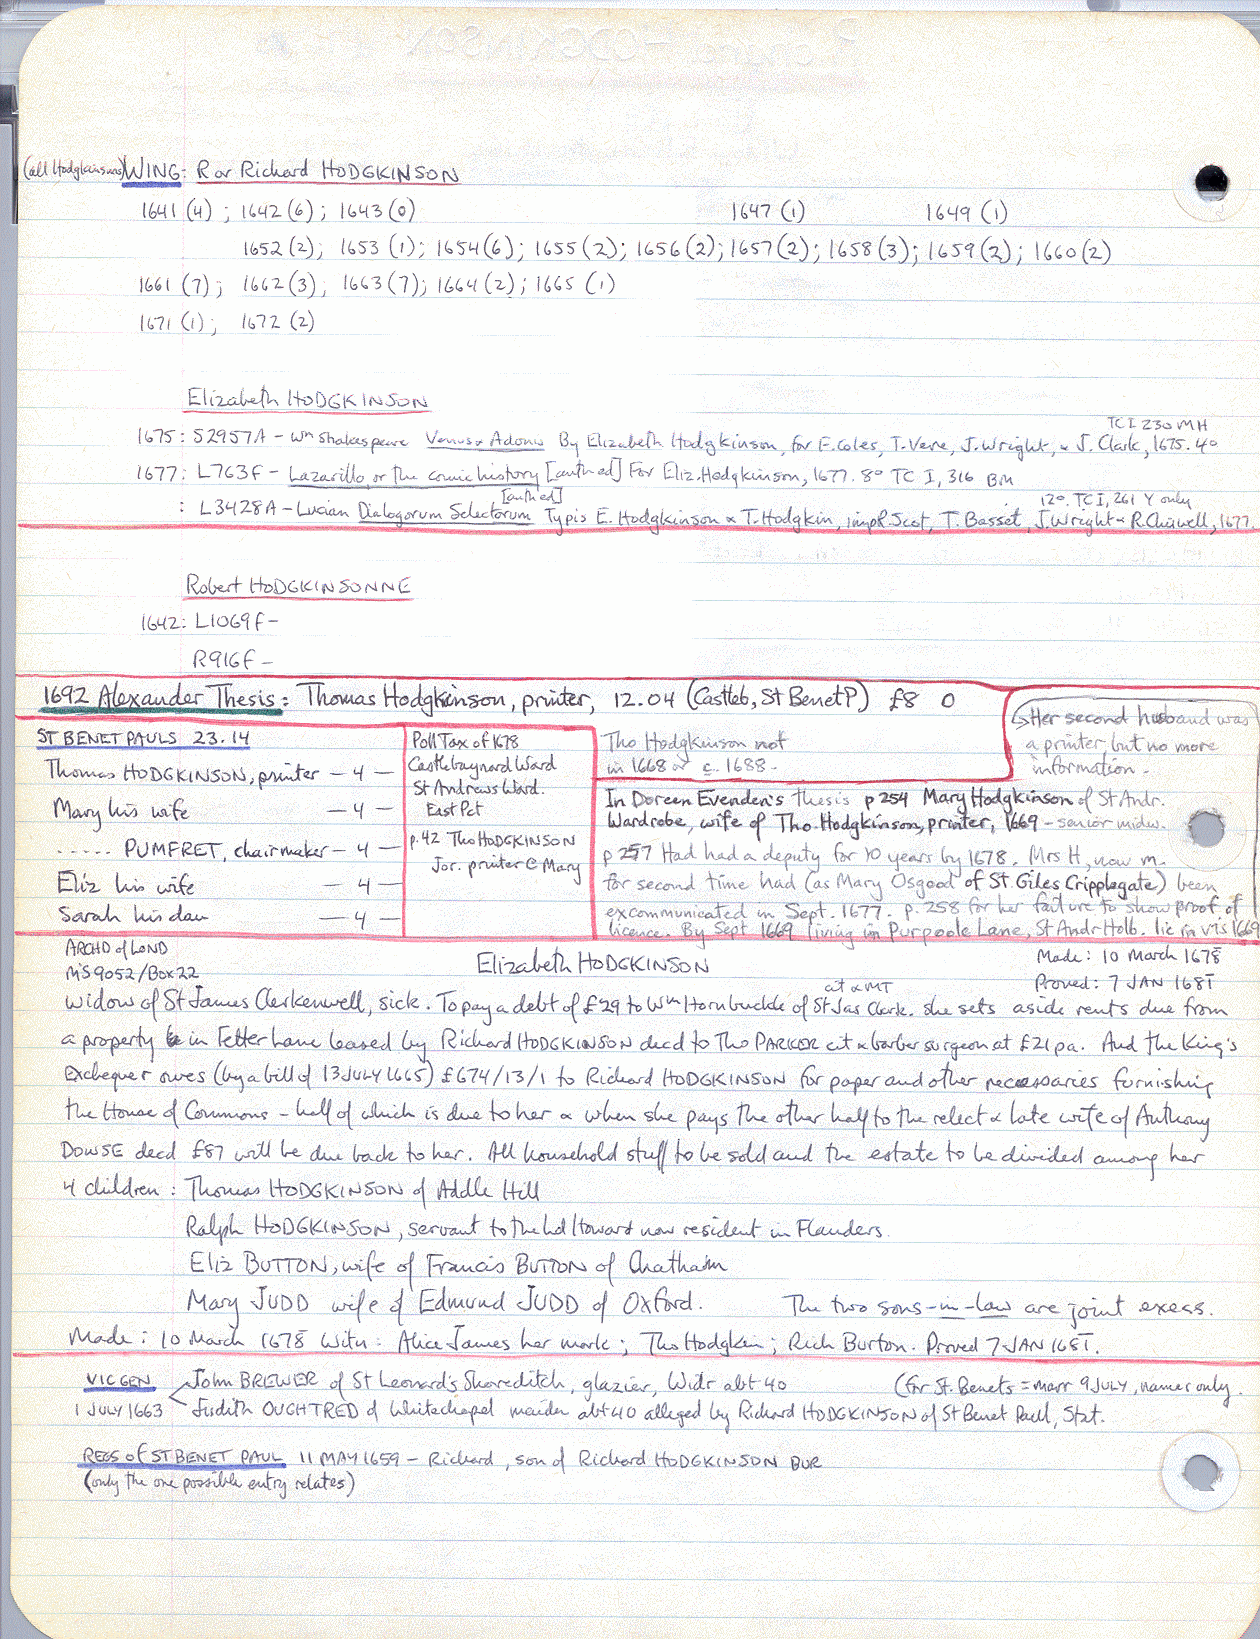 (all Hodgkinsons) WING: R or Richard HODGKINSON
1641 (4) ; 1642 (6) ; 1643 (0) 1647 (1) 1649 (1)
1652 (2); 1653 (1); 1654 (6); 1655 (2); 1656 (2); 1657 (2); 1658 (3); 1659 (2); 1660 (2)
1661 (7); 1662 (3); 1663 (7); 1664 (2); 1665 (1)
1671 (1); 1672 (2)
Elizabeth HODGKINSON
TC I 230 MH
1675: S2957A – Wm Shakespeare Venus & Adonis By Elizabeth Hodgkinson, for F. Coles, T. Vere, J. Wright, & J. Clark, 1675. 4o
1677: L763F – Lazarillo, or the comic history [anth ed] For Eliz. Hodgkinson, 1677. 8o TC I, 316 BM
[anth ed] 12o. TC I, 261 Y only
: L3428A – Lucian Dialogorum Selectorum Typis E. Hodgkinson & T. Hodgkin, imp R. Scot, T. Basset, J. Wright & R. Chiswell, 1677.
Robert HODGKINSONNE
1642: L1069F –
R916F –
1692 Alexander Thesis: Thomas Hodgkinson, printer, 12.04 (Castleb, St Benet P) £8 0
↳ Her second husband was
a printer, but no more
information –
ST BENET PAULS 23.14
Thomas HODGKINSON, printer – 4 –
Mary his wife – 4 –
..... PUMFRET, chairmaker – 4 –
Eliz his wife – 4 –
Sarah his dau – 4 –
Poll Tax of 1678
Castlebaynard Ward
St Andrews Ward.
East Pct
p. 42 Tho HODGKINSON
Jor. printer @ Mary
Tho Hodgkinson not
in 1668 or c. 1688 –
In Doreen Evenden's thesis p 254 Mary Hodgkinson of St Andr.
Wardrobe, wife of Tho. Hodgkinson, printer, 1669 – senior midw.
p 257 Had had a deputy for 10 years by 1678. Mrs H, now m.
for second time had (as Mary Osgood of St. Giles Cripplegate) been
excommunicated in Sept. 1677. p. 258 for her failure to show proof of
licence. By Sept 1669 living in Purpoole Lane, St Andr Holb. lic in V is 1669
ARCHD of LOND
MS 9052/Box 22
Elizabeth HODGKINSON
Made: 10 March 1678
Proved: 7 JAN 1681
cit & MT
widow of St James Clerkenwell, sick. To pay a debt of £29 to Wm Hornbuckle of St Jas Clerk. she sets aside rents due from
a property in Fetter Lane leased by Richard HODGKINSON decd to Tho PARKER cit & barber surgeon at £21 pa. And the King's
Exchequer owes (by a bill of 13 JULY 1665) £674/13/1 to Richard HODGKINSON for paper and other necessaries furnishing
the House of Commons – half of which is due to her & when she pays the other half to the relect & late wife of Anthony
DOWSE decd £87 will be due back to her. All household stuff to be sold and the estate to be divided among her
4 children: Thomas HODGKINSON of Addle Hill
Ralph HODGKINSON, servant to the Ld Howard now resident in Flanders.
Eliz BUTTON, wife of Francis BUTTON of Chatham
Mary JUDD wife of Edmund JUDD of Oxford. The two sons-in-law are joint exess.
Made: 10 March 1678 Witn: Alice James her mark; Tho Hodgkin; Rich Burton. Proved 7 JAN 1681.
VIC GEN John BREWER of St Leonard's Shoreditch, glazier, Widr abt 40 (for St. Benets = marr 9 JULY, names only.
1 JULY 1663 Judith OUGHTRED of Whitechapel maiden abt 40 alleged by Richard HODGKINSON of St Benet Paul, Stat.
REGS of ST BENET PAUL 11 MAY 1659 – Richard, son of Richard HODGKINSON BUR
(only the one possible entry relates)